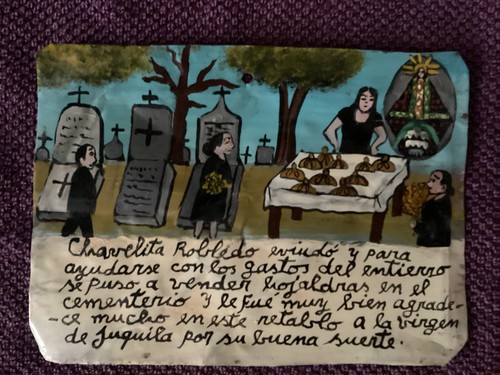 Chavelita Robledo eviudó y para
ayudarse con los gastos del entierro
se puso a vender hojaldras en el
cementerio y le fue muy bien agrade-
-ce mucho en este retablo a la virgen
de Juquila por su buena suerte.